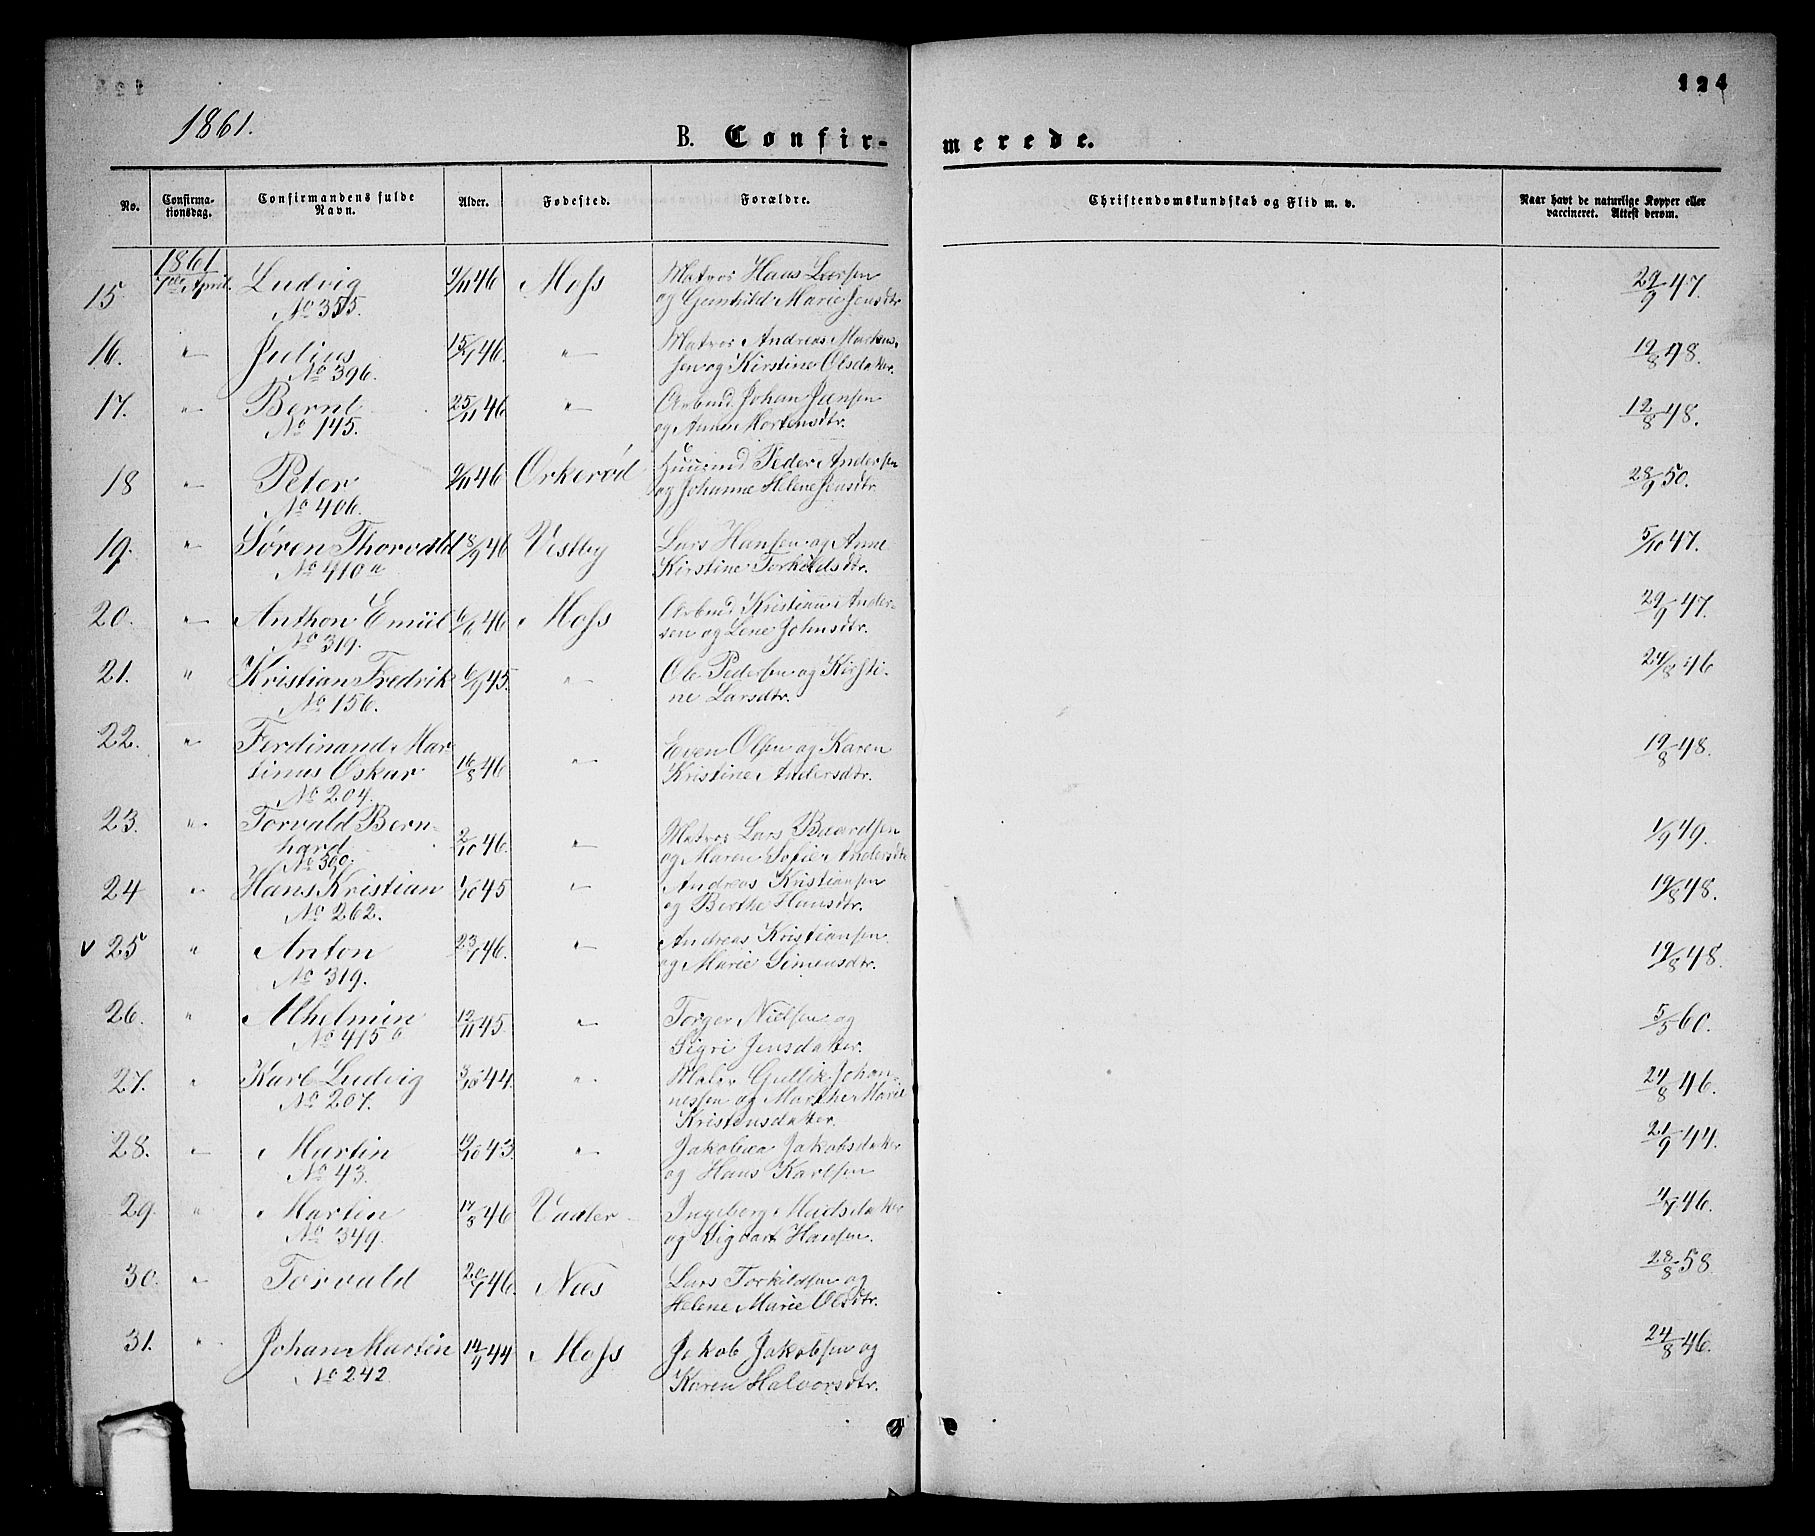 124
1861.
B. Confir-
merede.
No.
Confirma-
tionsdag.
Confirmandens fulde
Navn.
Alder.
Fødested.
Forældre.
Christendomskundskab og Flid m. v.
Naar havt de naturlige Kopper eller
vaccineret. Attest derom.
1861
15. 7de April. Ludvig 9/11 46 Moss Matros Hans Larsen 29/9 47.
No 355. og Gunhild Marie Jensdtr
16. " Julius 46. " Matros Andreas Markus- 19/8 48.
No 396. sen og Kirstine Olsdater.
17. " Bernt 25/11 46 " Arbmd Johan Jensen 12/8 48.
No 145. og Anne Mortensdtr.
18 " Peter 9/11 46 Orkerød Huusmd Peder Andersen 28/9 50.
No 406. og Johanne Helene Jensdtr.
19. " Søren Thorvald 18/9 46 Vestby Lars Hansen og Anne 5/10 47.
No 410 a Kirstine Torkildsdtr.
20. " Anthon Emiil 6/6 46 Moss Arbmd Kristian Ander- 29/9 47.
No 319. sen og Lene Johnsdtr.
21. " Kristian Fredrik 6/9 45. " Ole Pedersen og Kirsti- 24/8 46
No 156. ne Larsdtr.
22. " Ferdinand Mar-
tinus Oskar 16/8 46 " Even Olsen og Karen 19/8 48.
No 204. Kristine Andersdtr.
23. " Torvald Bern-
hard 2/10 46. " Matros Lars Baardsen 1/9 49.
No 390. og Maren Sofie Andersdtr
24 " Hans Kristian 1/10 45 " Andreas Kristiansen 19/8 48.
No 262. og Berthe Hansdtr.
v 25 " Anton 23/1 46. " Andreas Kristiansen 19/8 48.
No 319. og Marie Simensdtr.
26. " Alhelmin 12/11 45. " Torger Nielsen og 5/5 60.
No 415 b Sigri Jensdatter.
27. " Karl Ludvig 3/10 44. " Maler Gullik Johan- 24/8 46.
No 207. nessen og Marthe Marie
Kristensdatter.
28. " Martin 19/10 43. " Jakobea Jakobsdater 21/9 44.
No 43. og Hans Karlsen
29. " Martin 17/3 46 Vaaler Ingeborg 4/7 46.
No 349. og Sigvart Hansen.
30. " Torvald 46. Næs Lars Torkildsen og 28/8 58
Helene Marie Olsdtr.
31. " Johan Martin 14/9 44 Moss Jakob Jakobsen og 24/8 46.
No 242 Karen Halvorsdtr.